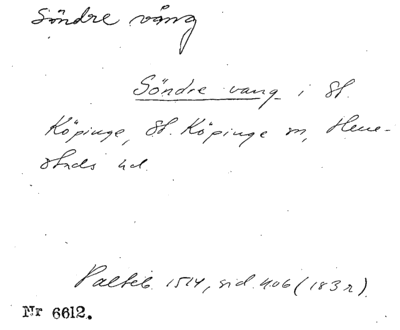 Söndre vång
Söndre vang i St.
Köpinge, St. Köpinge sn, Here-
stads hd.
Palteb. 1514, sid. 406 (183 r).
Nr 6612.